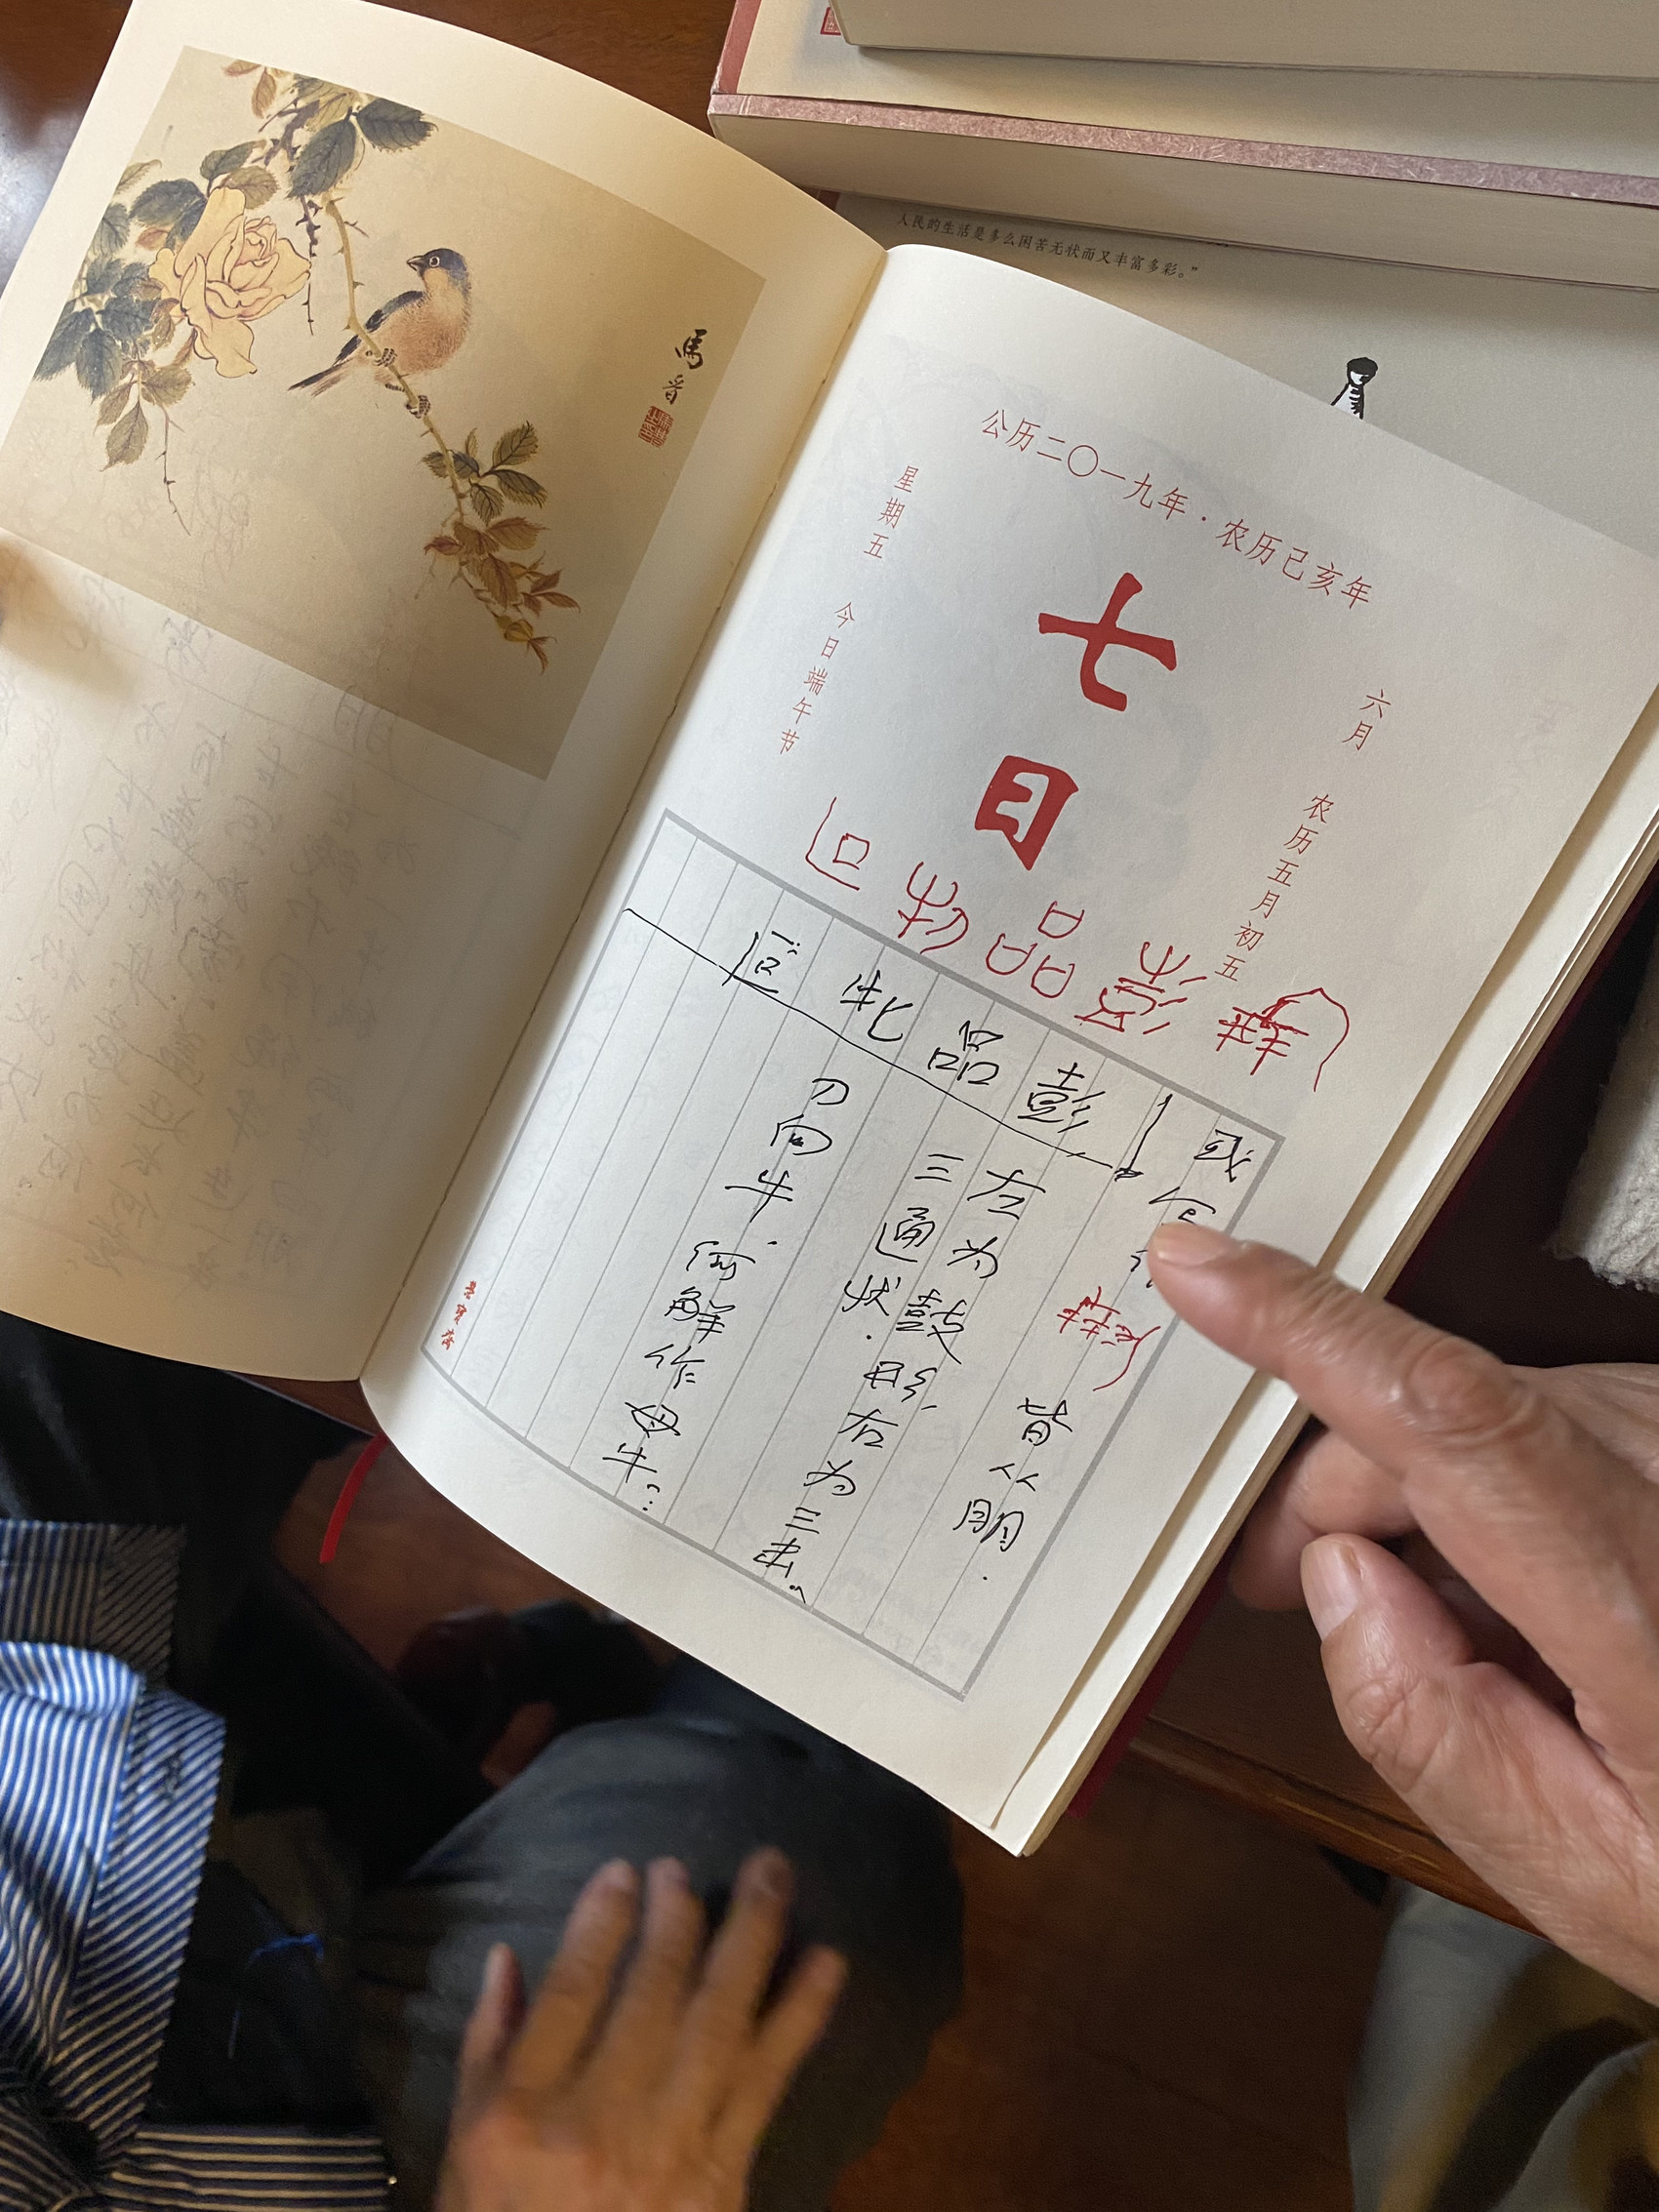 人民的生活是多么困苦无状而又丰富多彩。”
馬晋
公历二〇一九年·农历己亥年
六月
农历五月初五
七日
星期五
今日端午节
彭
品
物
或
皆从朋.
彭
左为鼓形,右为三击。
三通状.
品
牝
刀向牛.何解作母牛?
荣宝斋